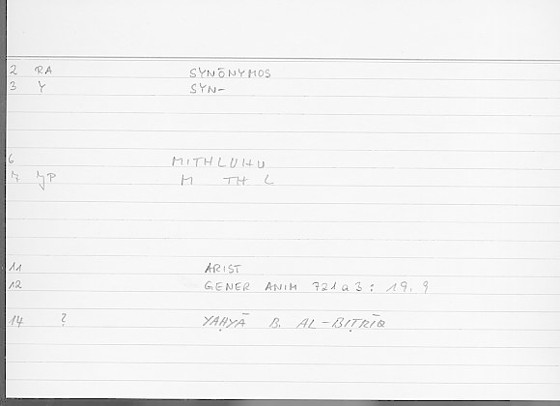 2 RA SYNŌNYMOS
3 Y SYN-
6 MITHLUHU
7 JP M TH L
11 ARIST
12 GENER ANIM 721a3: 19, 9
14 ? YAḤYĀ B. AL-BIṬRĪQ